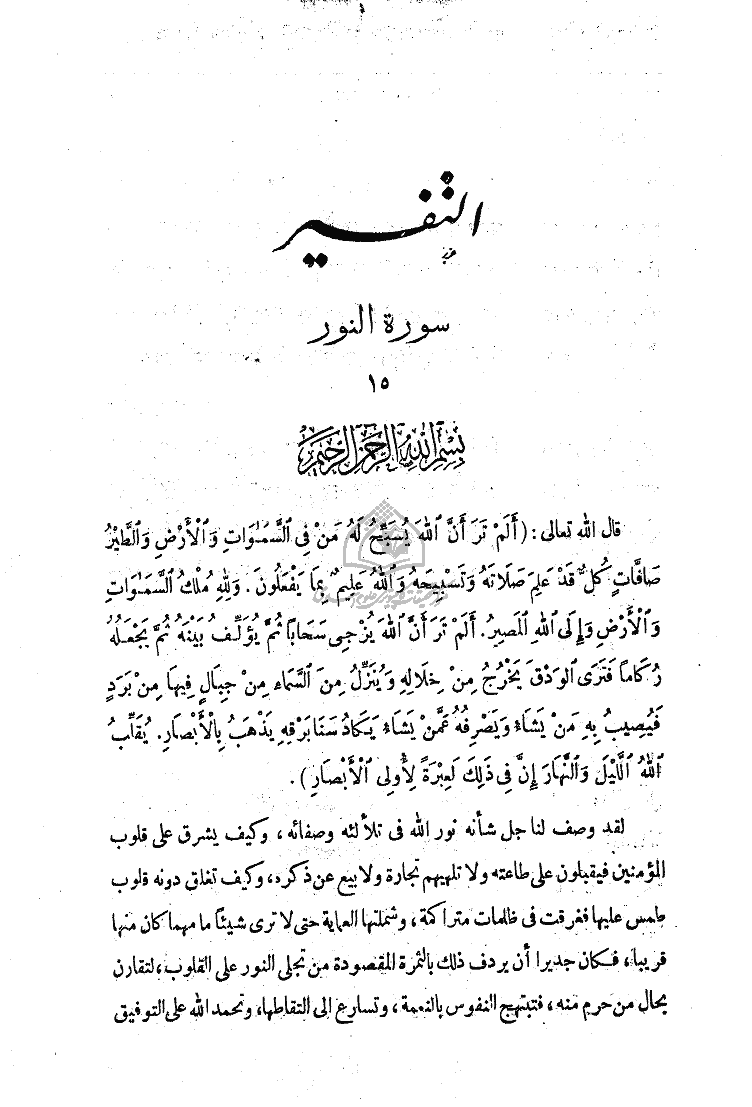 التفسير
سورة النور
١٥
بسم الله الرحمن الرحيم
قال الله تعالى : ( أَلَمْ تَرَ أَنَّ ٱللهَ يُسَبِّحُ لَهُ مَنْ فِى ٱلسَّمٰوَاتِ وَٱلْأَرْضِ وَٱلطَّيْرُ
صَافَّاتٍ كُلٌّ قَدْ عَلِمَ صَلَاتَهُ وَتَسْبِيحَهُ وَٱللهُ عَلِيمٌ بِمَا يَفْعَلُونَ . وَلِلهِ مُلْكُ ٱلسَّمَٰوَاتِ
وَٱلْأَرْضِ وَإِلَى ٱللهِ ٱلْمَصِيرُ . أَلَمْ تَرَ أَنَّ ٱللهَ يُزْجِى سَحَابًا ثُمَّ يُؤَلِّفُ بَيْنَهُ ثُمَّ يَجْعَلُهُ
رُكَامًا فَتَرَى ٱلْوَدْقَ يَخْرُجُ مِنْ خِلَالِهِ وَيُنَزِّلُ مِنَ ٱلسَّمَاءِ مِنْ جِبَالٍ فِيهَا مِنْ بَرَدٍ
فَيُصِيبُ بِهِ مَنْ يَشَاءُ وَيَصْرِفُهُ عَمَّنْ يَشَاءُ يَكَادُ سَنَا بَرْقِهِ يَذْهَبُ بِالْأَبْصَارِ . يُقَلِّبُ
ٱللهُ ٱللَّيْلَ وَٱلنَّهَارَ إِنَّ فِى ذَلِكَ لَعِبْرَةً لِأُولِى ٱلْأَبْصَارِ ) .
لقد وصف لنا جل شأنه نور الله فى تلألئه وصفائه ، وكيف يشرق على قلوب
المؤمنين فيقبلون على طاعته ولا تلهيهم تجارة ولا بيع عن ذكره، وكيف تغلق دونه قلوب
طمس عليها فغرقت فى ظلمات متراكمة ، وشملتها العماية حتى لا ترى شيئًا ما مهما كان منها
قريبا ، فكان جديرا أن يردف ذلك بالثمرة المقصودة من تجلى النور على القلوب ، لتقارن
بحال من حرم منه ، فتبتهج النفوس بالنعمة ، وتسارع إلى التقاطها، وتحمد الله على التوفيق